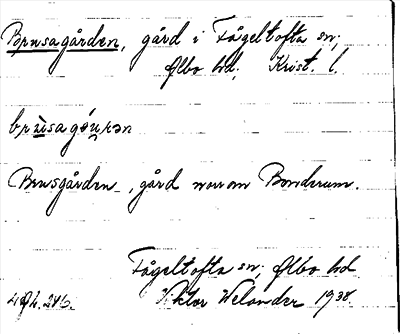 Brusagården, gård i Fågeltofta sn;
Albo hd; Krist. l.
Brusgården, gård norr om Bonderum.
Fågeltofta sn; Albo hd
Viktor Welander 1938.